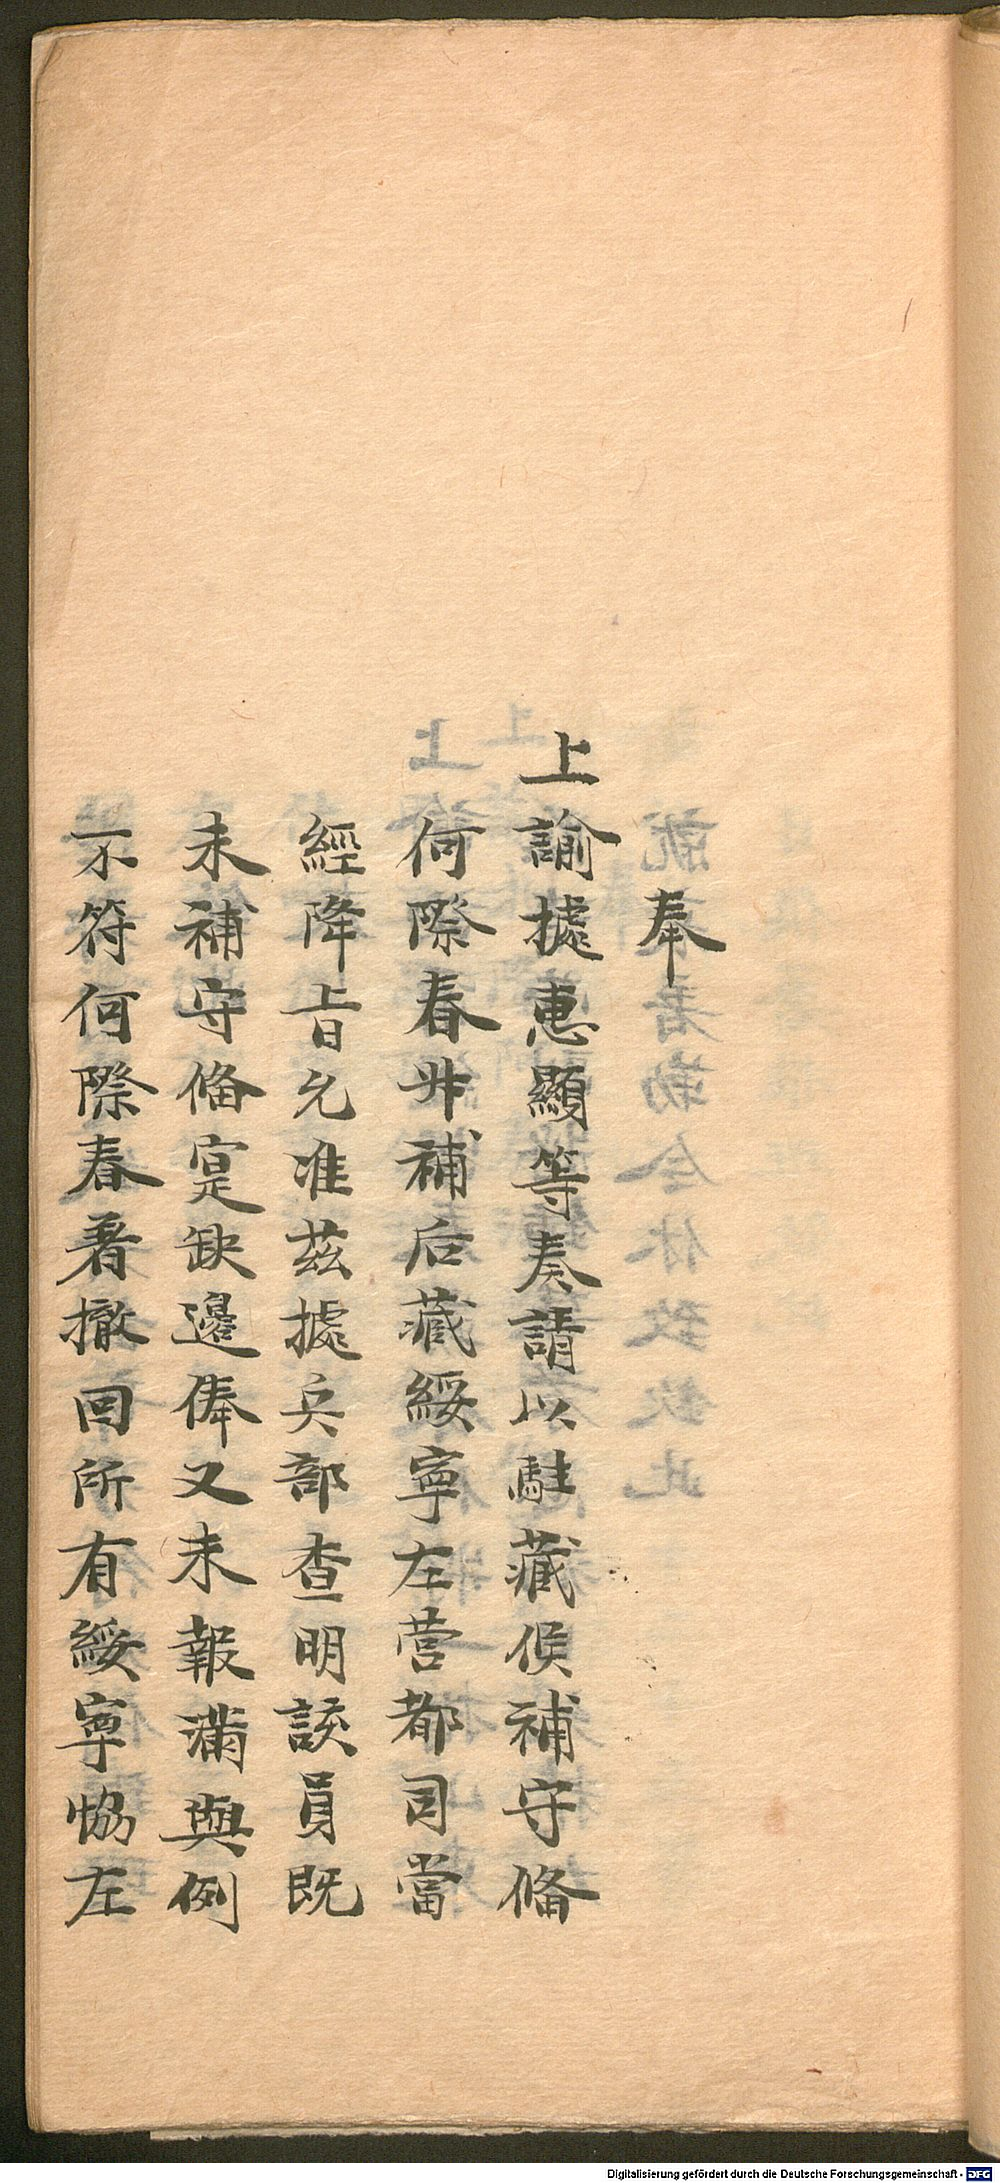 奉
上諭據惠顯等奏請以駐藏候補守俻
何際春升補后藏綏寧左营都司當
經降旨允准茲據兵部查明該員既
未補守俻寔缺邊俸又未報滿與例
不符何際春著撤回所有綏寧協左
Digitalisierung gefördert durch die Deutsche Forschungsgemeinschaft - DFG